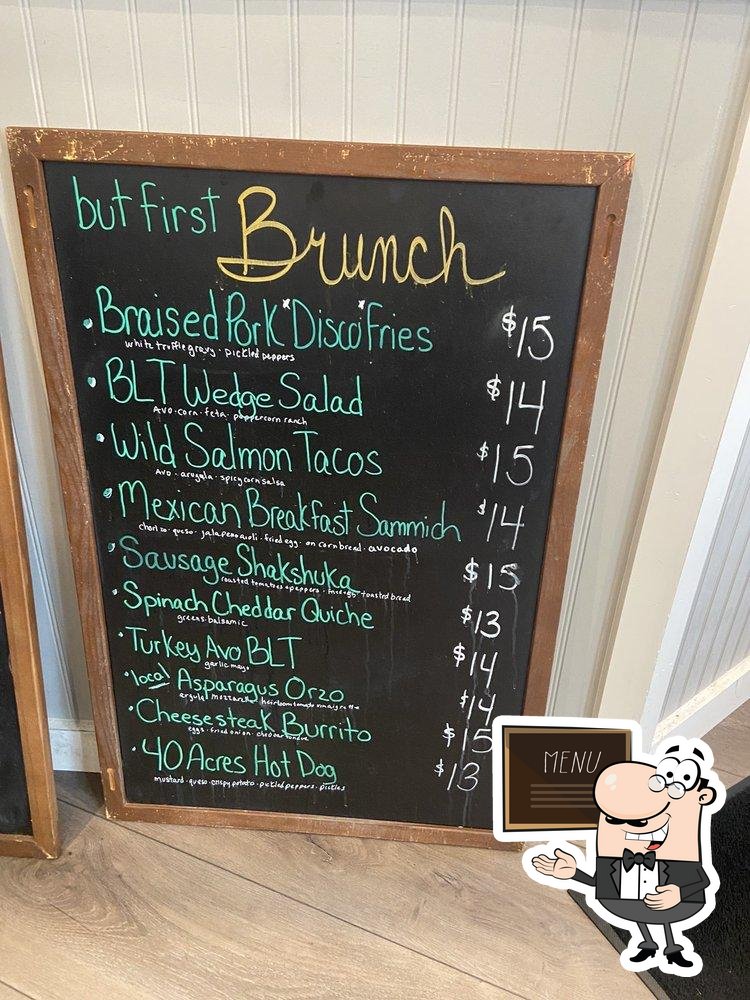 but first Brunch
Braised Pork "Disco" Fries $15
white truffle gravy · pickled peppers
BLT Wedge Salad $14
Avo · corn · feta · peppercorn ranch
Wild Salmon Tacos $15
Avo · arugula · spicy corn salsa
Mexican Breakfast Sammich $14
chorizo · queso · jalapeno aioli · fried egg · on cornbread · avocado
Sausage Shakshuka $15
roasted tomatoes + peppers · fried egg · toasted bread
Spinach Cheddar Quiche $13
greens · balsamic
Turkey Avo BLT $14
garlic mayo
local Asparagus Orzo $14
mozzarella heirloom tomato vinaigrette
Cheesesteak Burrito $15
eggs · fried onion · cheddar
40 Acres Hot Dog $13
mustard · queso · crispy potato · pickled peppers · pickles
MENU